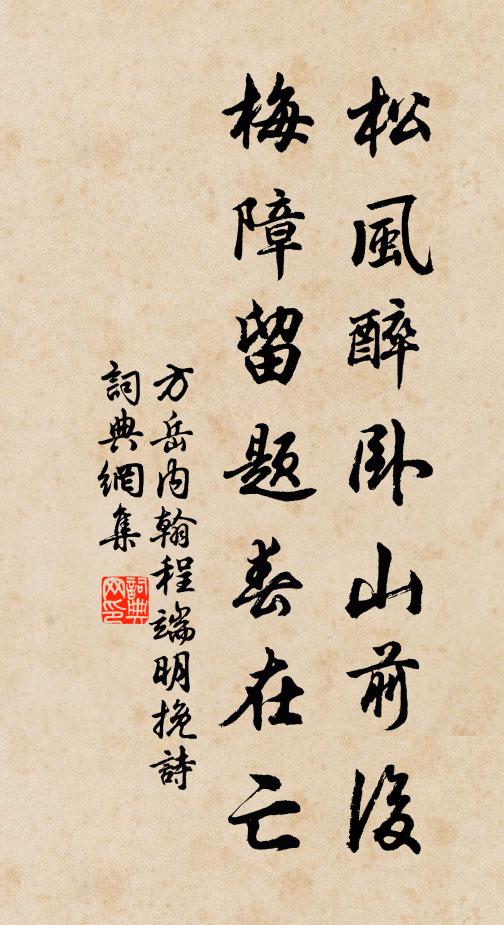 松風醉卧山前後
梅障留題春在亡
方岳内翰程端明挽詩
詞典網集
詞典
网印